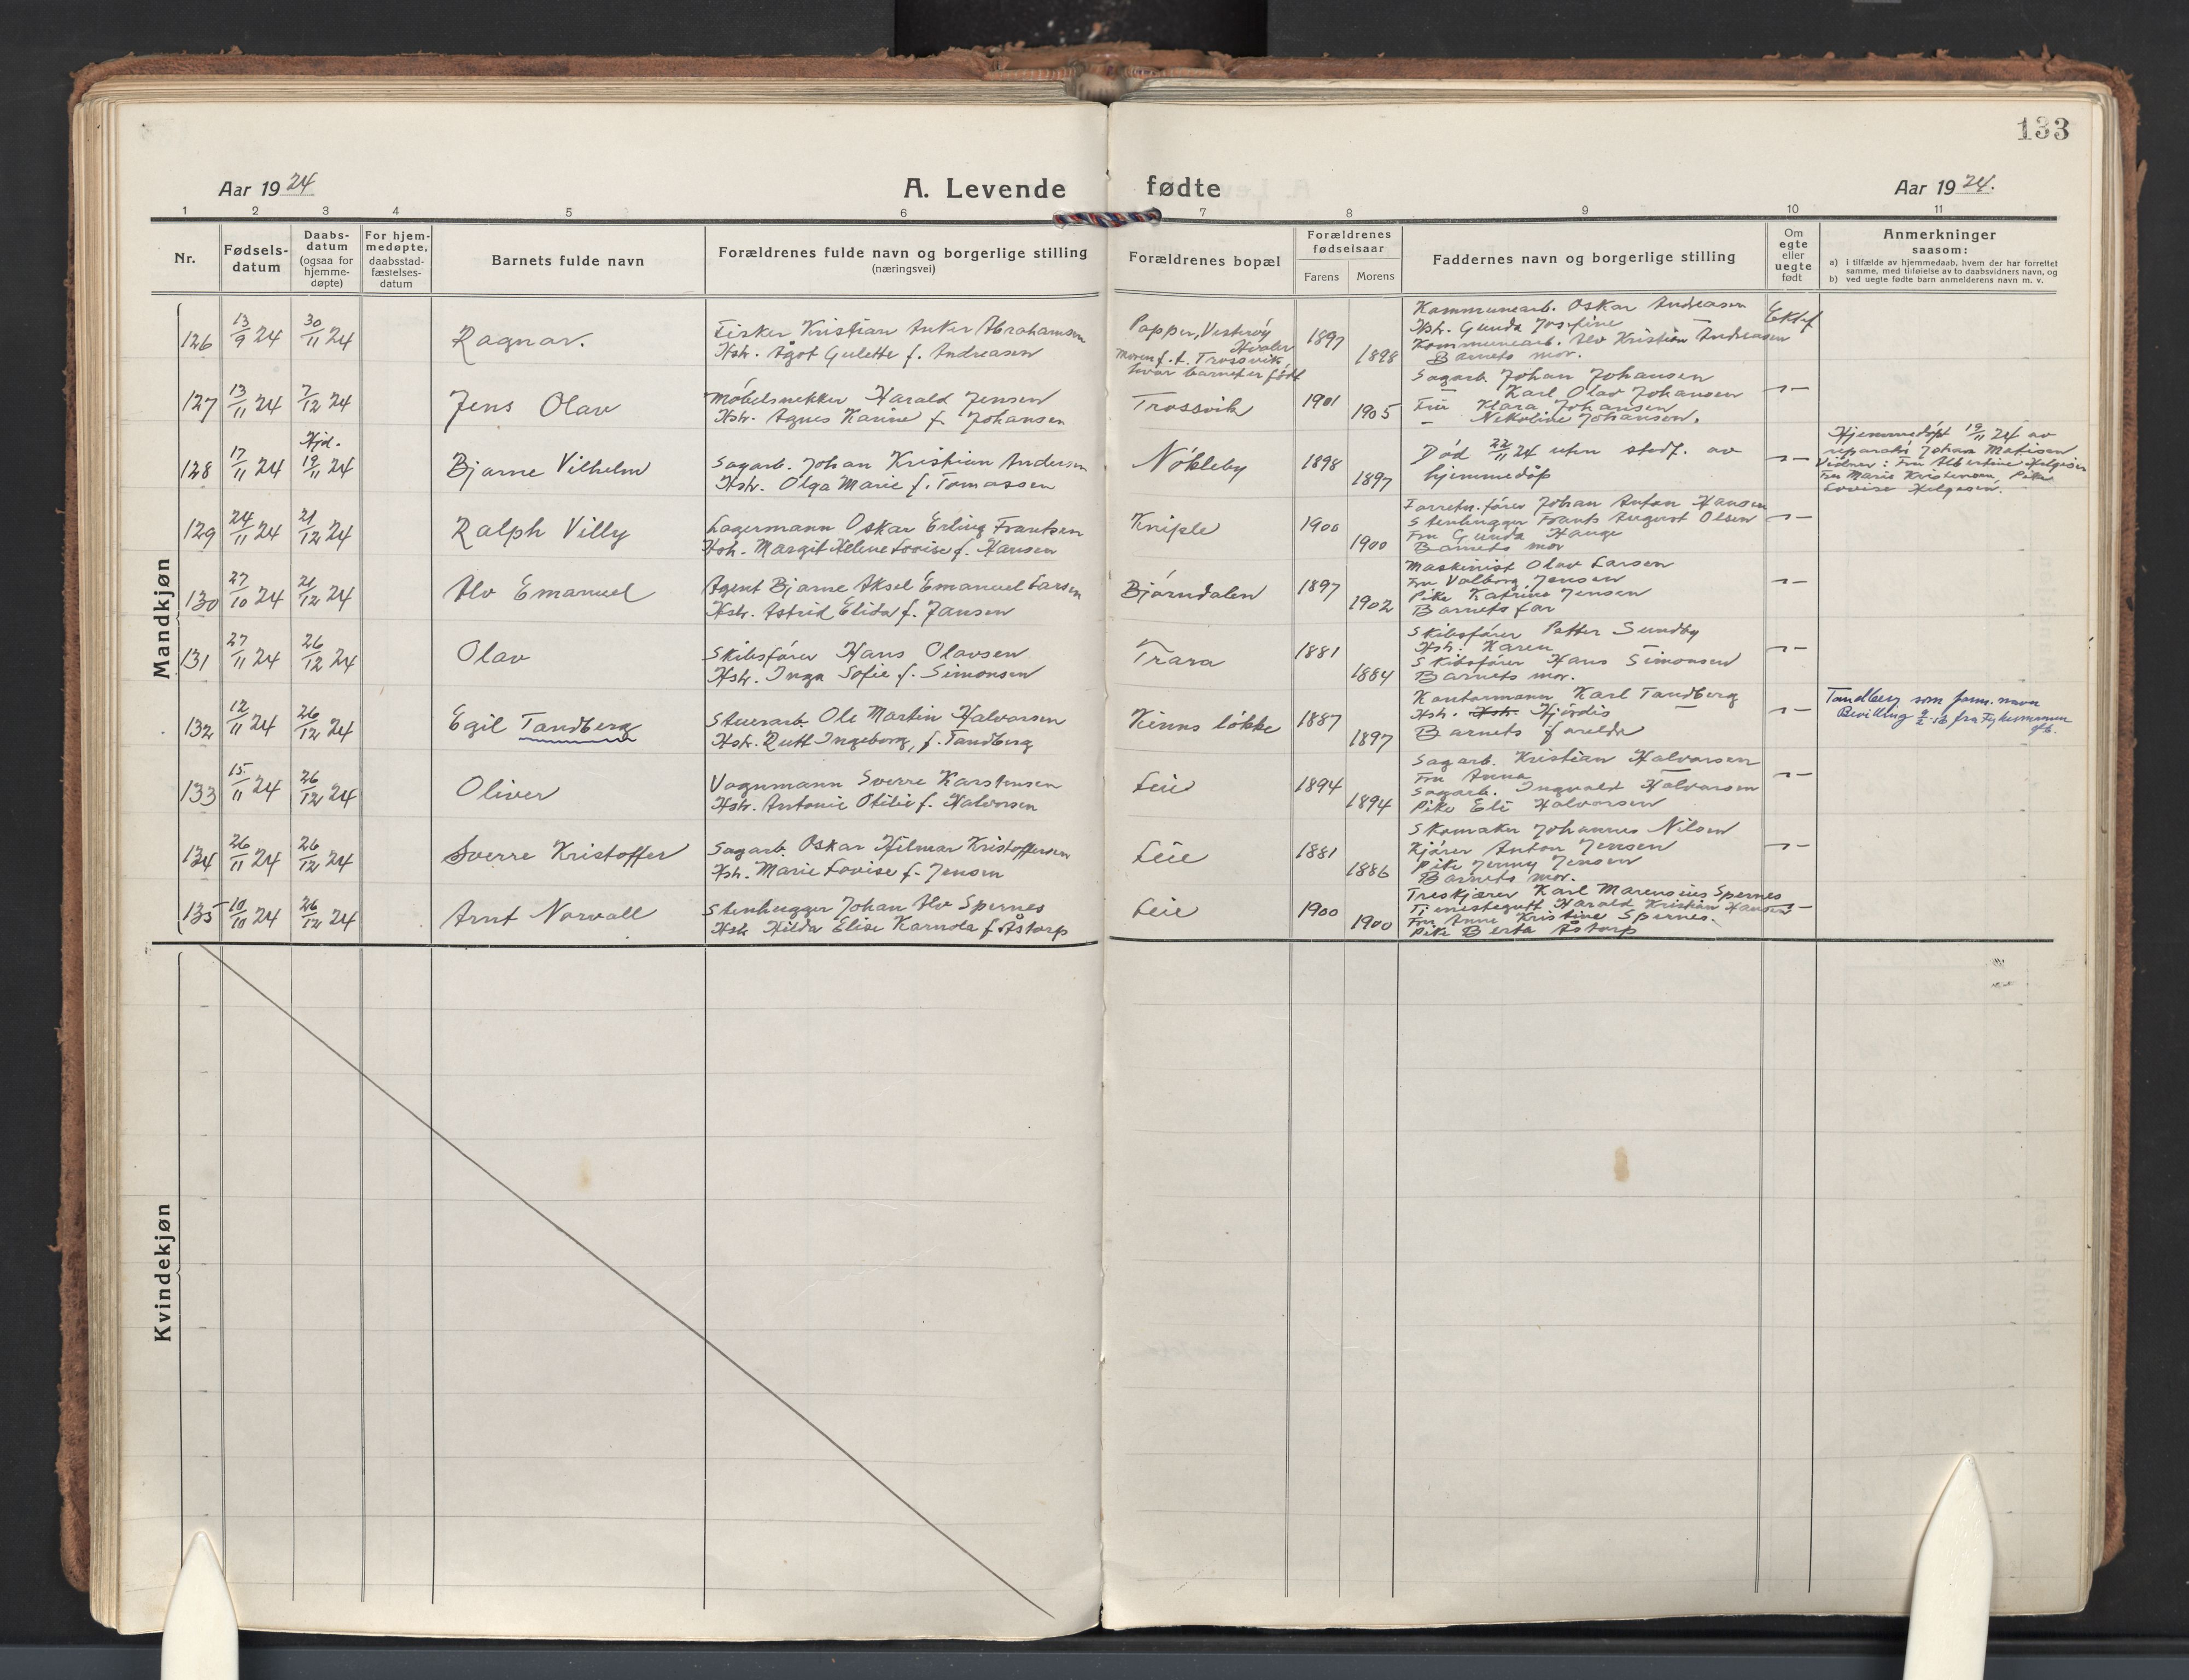 133
Aar 1924
A. Levende fødte
Aar 1924.
1 2 3 4 5 6 7 8 9 10 11
Nr.
Fødsels-
datum
Daabs-
datum
(ogsaa for
hjemme-
døpte)
For hjem-
medøpte,
daabsstad-
fæstelses-
datum
Barnets fulde navn
Forældrenes fulde navn og borgerlige stilling
(næringsvei)
Forældrenes bopæl
Forældrenes
fødselsaar
Farens Morens
Faddernes navn og borgerlige stilling
Om
egte
eller
uegte
født
Anmerkninger
saasom:
a) i tilfælde av hjemmedaab, hvem der har forrettet
samme, med tilføielse av to daabsvidners navn, og
b) ved uegte fødte barn anmelderens navn m. v.
Mandkjøn
126 13/9 24 30/11 24 Ragnar.
Fisker Kristian Anker Abrahamsen
Hstr. Ågot Gulette f. Andreasen
Papper, Vesterøy
Hvaler
Moren f. t. Trossvik,
hvor barnet er født
1897 1898
Kommunearb. Oskar Andreasen
Hstr. Gunda Josefine
Kommunearb. Alv Kristian Andreasen
Barnets mor.
Ektef
127 13/11 24 7/12 24 Jens Olav
Møbelsnekker Harald Jensen
Hstr. Agnes Karine f. Johansen
Trossvik 1901 1905
Sagarb. Johan Johansen
— Karl Olav Johansen
Fru Klara Johansen
— Nikoline Johansen.
—"—
128 17/11 24 Hjd. 19/11 24 Bjarne Vilhelm
Sagarb. Johan Kristian Andersen
Hstr. Olga Marie f. Tomassen
Nøkleby 1898 1897
Død 22/11 24 uten stadf. av
hjemmedåp
—"—
Hjemmedøpt 19/11 24 av
reparatør Johan Matisen
Vidner: Fru Albertine Helgesen
Fru Marie Kristensen, Pike
Lovise Helgesen.
129 24/11 24 21/12 24 Ralph Villy
Lagermann Oskar Erling Frantsen
Hstr. Margit Helene Lovise f. Hansen
Kniple 1900 1900
Forretn.fører Johan Anton Hansen
Stenhugger Frants August Olsen
Fru Gunda Hauge
Barnets mor
—"—
130 27/10 24 21/12 24 Alv Emanuel
Agent Bjarne Aksel Emanuel Larsen
Hstr. Astrid Elida f. Jansen
Bjørndalen 1897 1902
Maskinist Olav Larsen
Fru Valborg Jensen
Pike Katrine Jensen
Barnets far
—"—
131 27/11 24 26/12 24 Olav
Skibsfører Hans Olavsen
Hstr. Inga Sofie f. Simonsen
Trara 1881 1884
Skibsfører Petter Sundby
Hstr. Karen
Skibsfører Hans Simonsen
Barnets mor.
—"—
132 12/11 24 26/12 24 Egil Tandberg
Stuerarb. Ole Martin Halvorsen
Hstr. Rutt Ingeborg, f. Tandberg
Kinns løkke 1887 1897
Kontormann Karl Tandberg
Hstr. Hstr. Hjørdis
Barnets forelde
—"—
Tandberg som fam. navn
Bevilling
133 15/11 24 26/12 24 Oliver
Vognmann Sverre Karstensen
Hstr. Antonie Otilie f. Halvorsen
Leie 1894 1894
Sagarb. Kristian Halvorsen
Fru Anna
Sagarb. Ingvald Halvorsen
Pike Eli Halvorsen
—"—
134 26/11 24 26/12 24 Sverre Kristoffer
Sagarb. Oskar Hilmar Kristoffersen
Hstr. Marie Lovise f. Jensen
Leie 1881 1886
Skomaker Johannes Nilsen
Kjører Anton Jensen
Pike Jenny Jensen
Barnets mor.
—"—
135 10/10 24 26/12 24 Arnt Norvall
Stenhugger Johan Alv Spernes
Hstr Hilda Elise Karnola f. Åstorp
Leie 1900 1900
Treskjærer Karl Marensius Spernes
Tjenestegutt Harald Kristian Hansen
Fru Anne Kristine Spernes.
Pike Berta Åstorp
—"—
Kvindekjøn